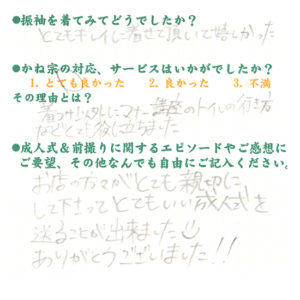 ●振袖を着てみてどうでしたか？
とてもキレイに着せて頂いて嬉しかった
●かね宗の対応、サービスはいかがでしたか？
1. とても良かった　2. 良かった　3. 不満
その理由とは？
着つけ以外にマナー講座のトイレの行き方
などとても役に立ちました
●成人式＆前撮りに関するエピソードやご感想に
ご要望、その他なんでも自由にご記入ください。
お店の方々がとても親切に
して下さってとてもいい成人式を
送ることが出来ました
ありがとうございました!!